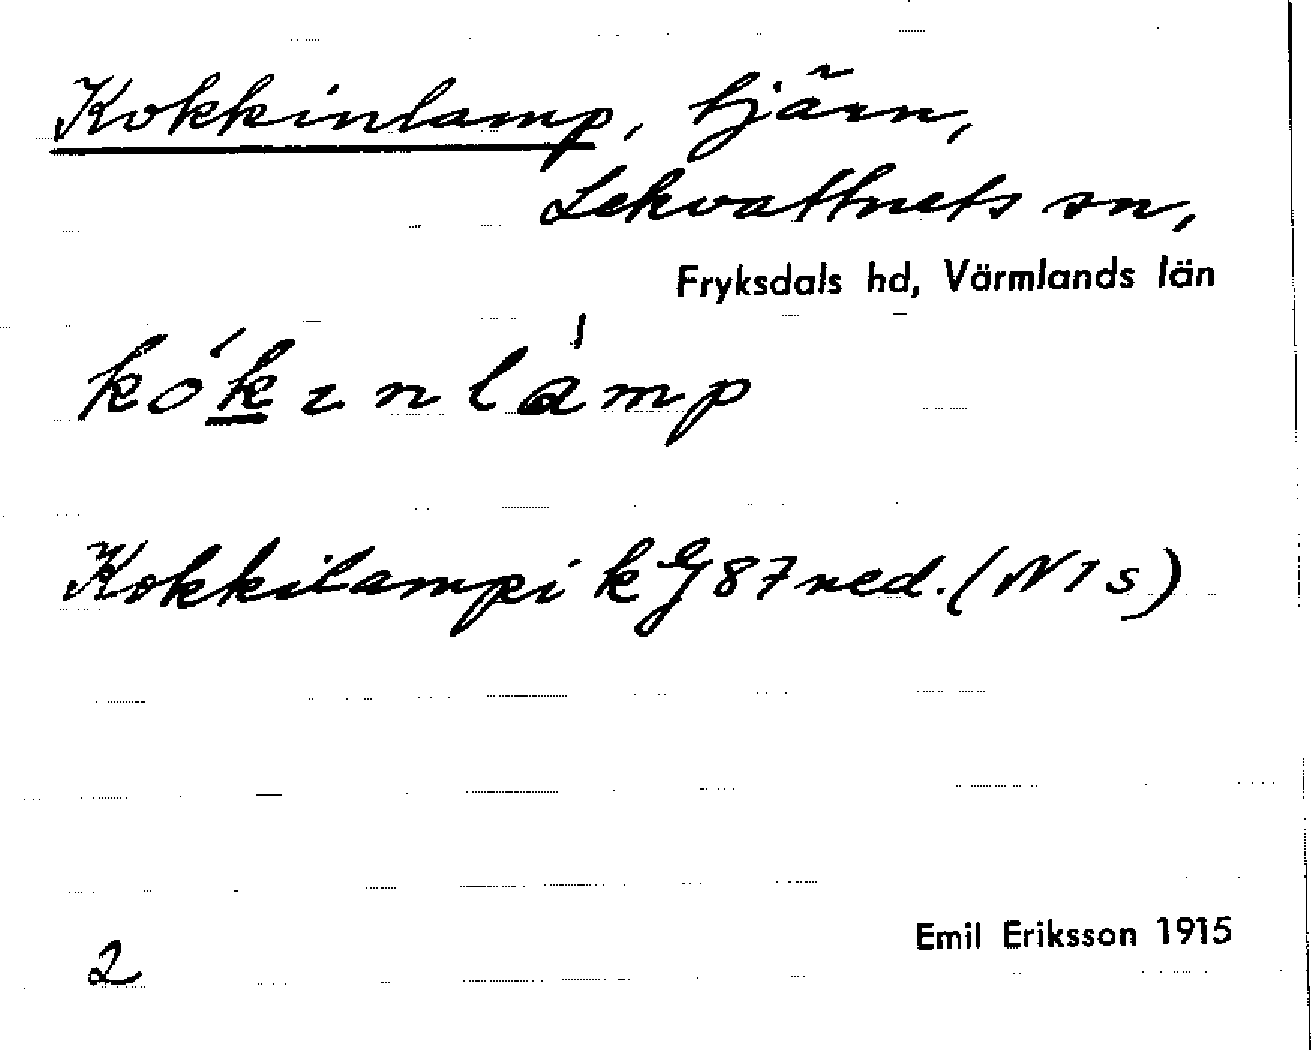 Kokkinlamp, tjärn,
Lekvattnets sn,
Fryksdals hd, Värmlands län
kók ɪnlàmp
Kokkilampi k G 87 ned. (N 1 s)
2
Emil Eriksson 1915